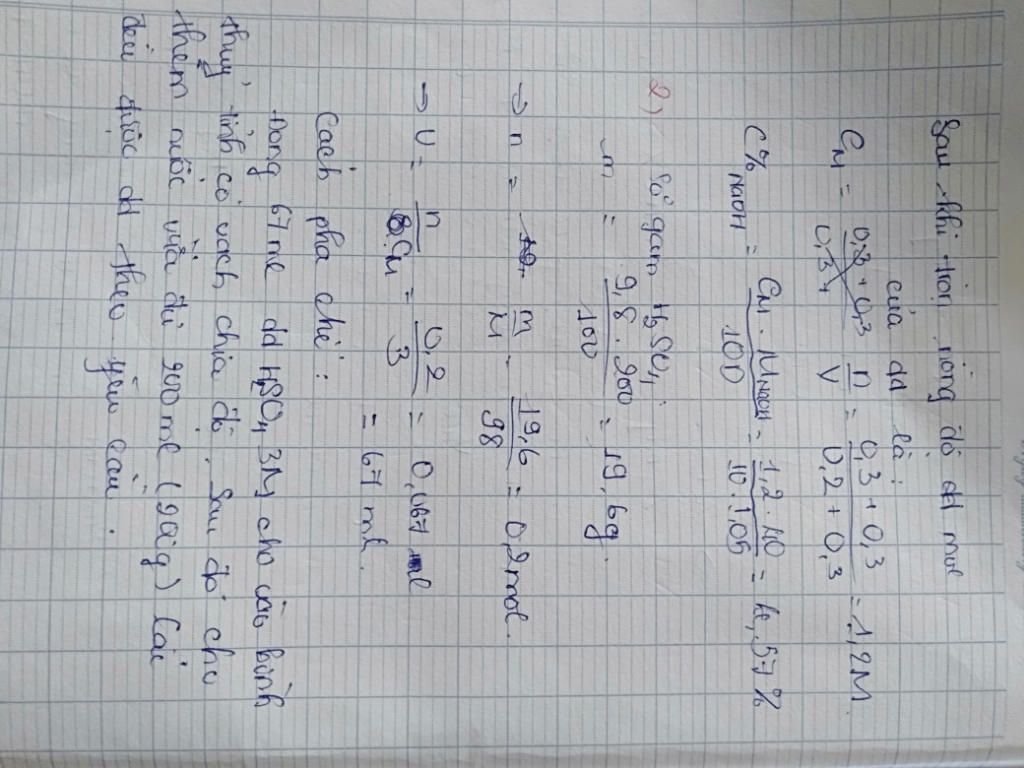 Sau khi trộn nồng độ dd mol
của dd là:
C_M = n/V = (0,3 + 0,3)/(0,2 + 0,3) = 1,2M.
C%_NaOH = (C_M . M_NaOH)/(10D) = (1,2 . 40)/(10.1,05) = 4,57%
2) Số gam H₂SO₄:
m = (9,8 . 200)/100 = 19,6g.
→ n = m/M = 19,6/98 = 0,2mol.
→ V = n/C_M = 0,2/3 = 0,067 l
= 67 ml.
Cách pha chế:
Đong 67ml dd H₂SO₄ 3M cho vào bình
thuỷ tinh có vạch chia độ. Sau đó cho
thêm nước vừa đủ 200ml (200g) lắc
đều được dd theo yêu cầu.